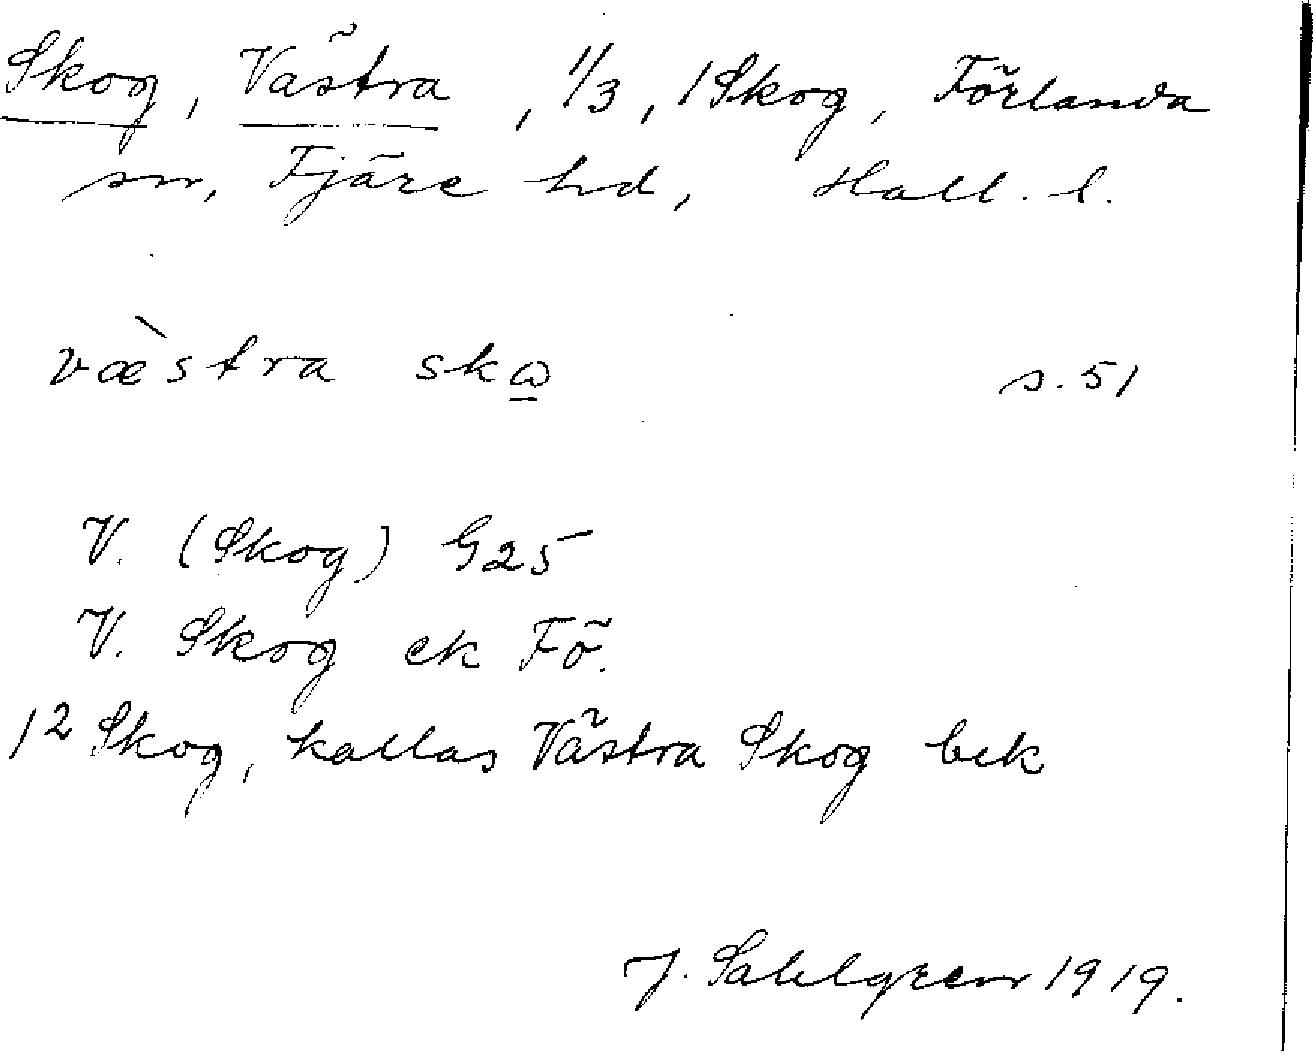 Skog, Västra, 1/3, 1 Skog, Förlanda
sn, Fjäre hd, Hall. l.
væ̀stra skɷ s. 51
V. (Skog) G25
V. Skog ek Fö.
1² Skog, kallas Västra Skog bek
J. Sahlgren 1919.